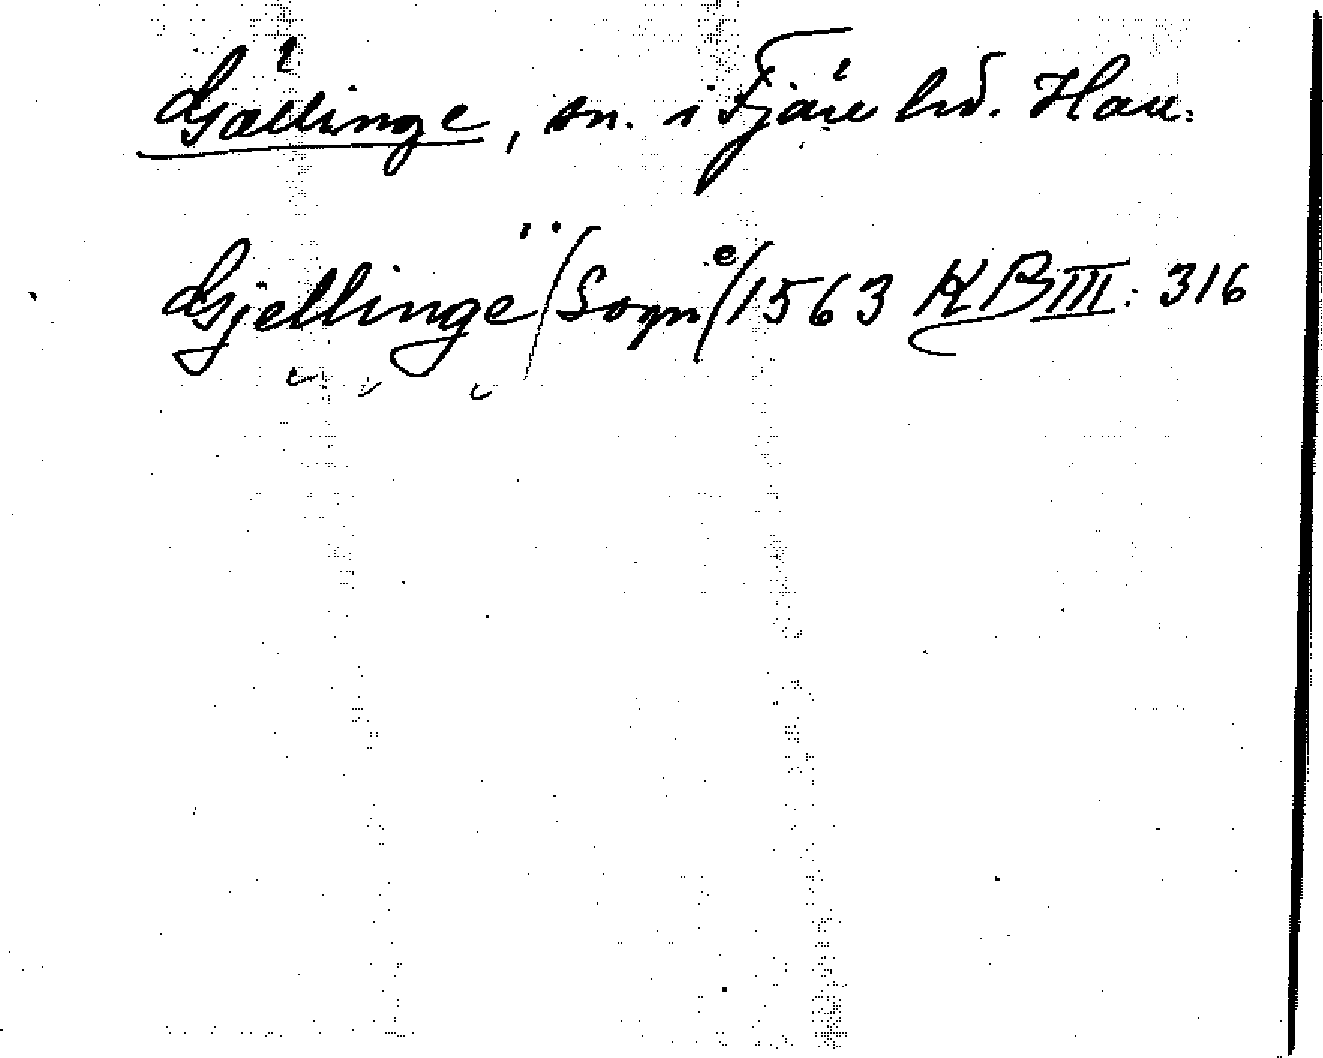 Gällinge, sn. i Fjäre hd. Hall.
Gjellinge (Sogn) 1563 KB III: 316